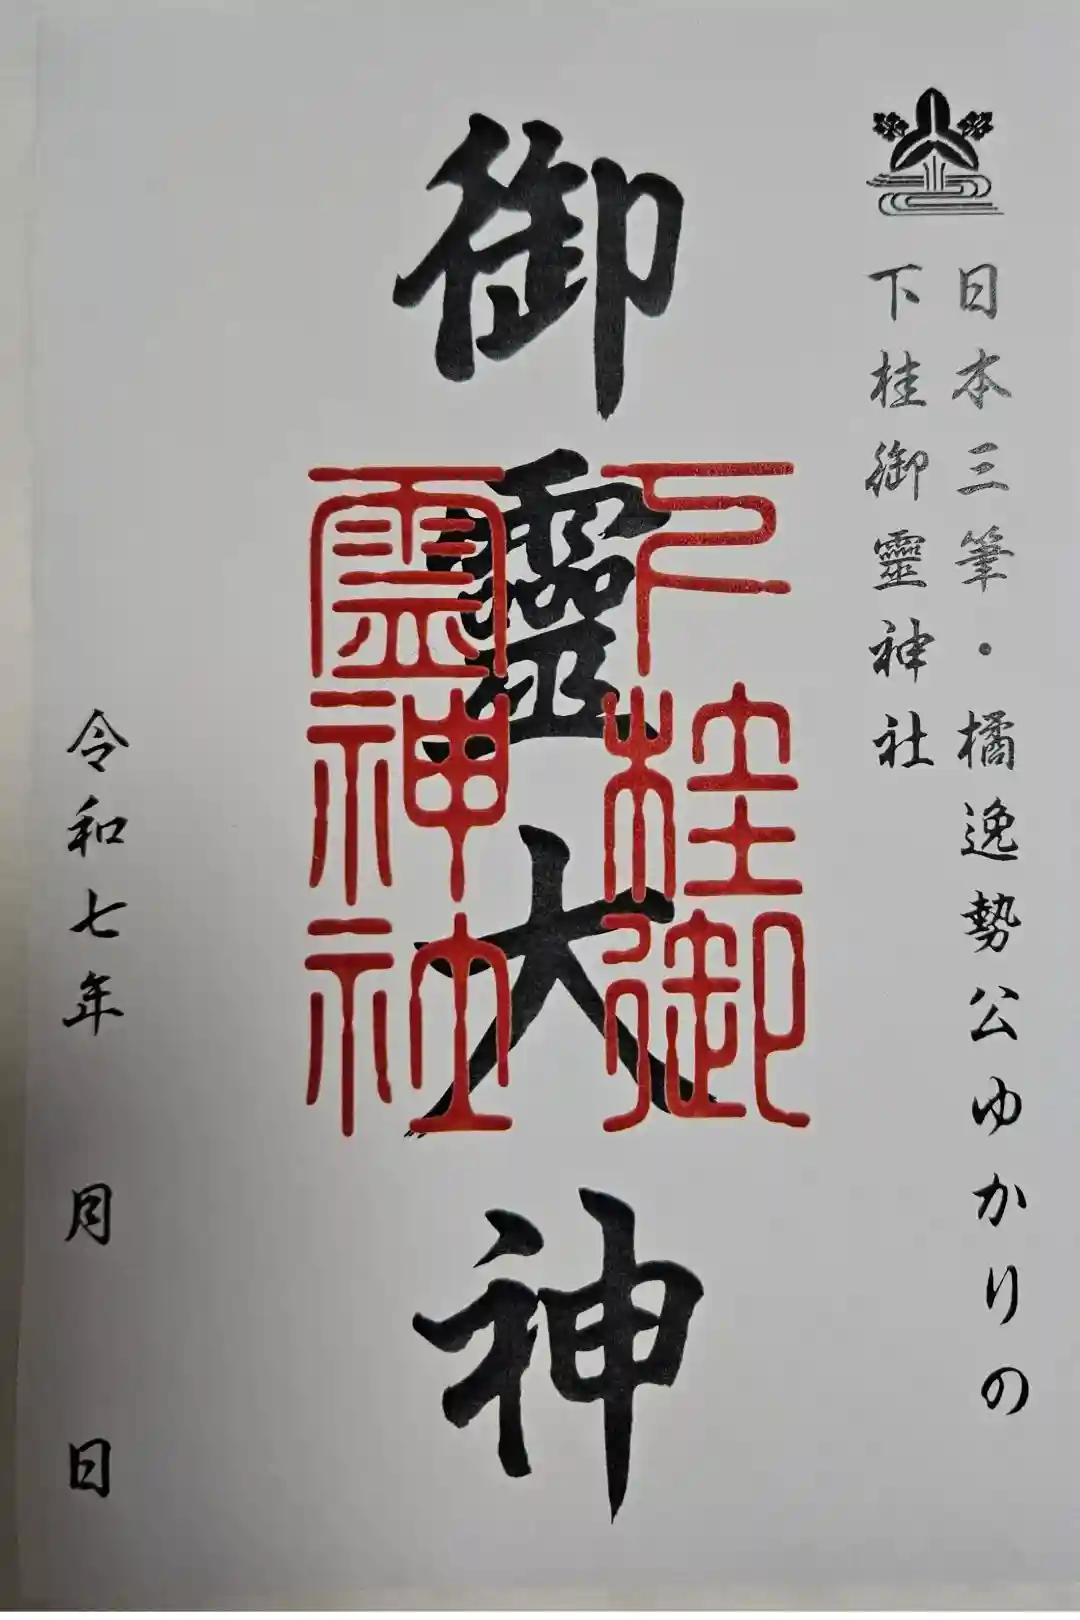 日本三筆・橘逸勢公ゆかりの
下桂御靈神社
御靈大神
下桂御
霊神社
令和七年 月 日